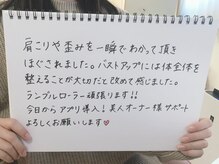 肩こりや歪みを一瞬でわかって頂き
ほぐされました。バストアップには体全体を
整えることが大切だと改めて感じました。
ランブルローラー頑張ります!!
今日からアプリ導入!美人オーナー様サポート
よろしくお願いします♡